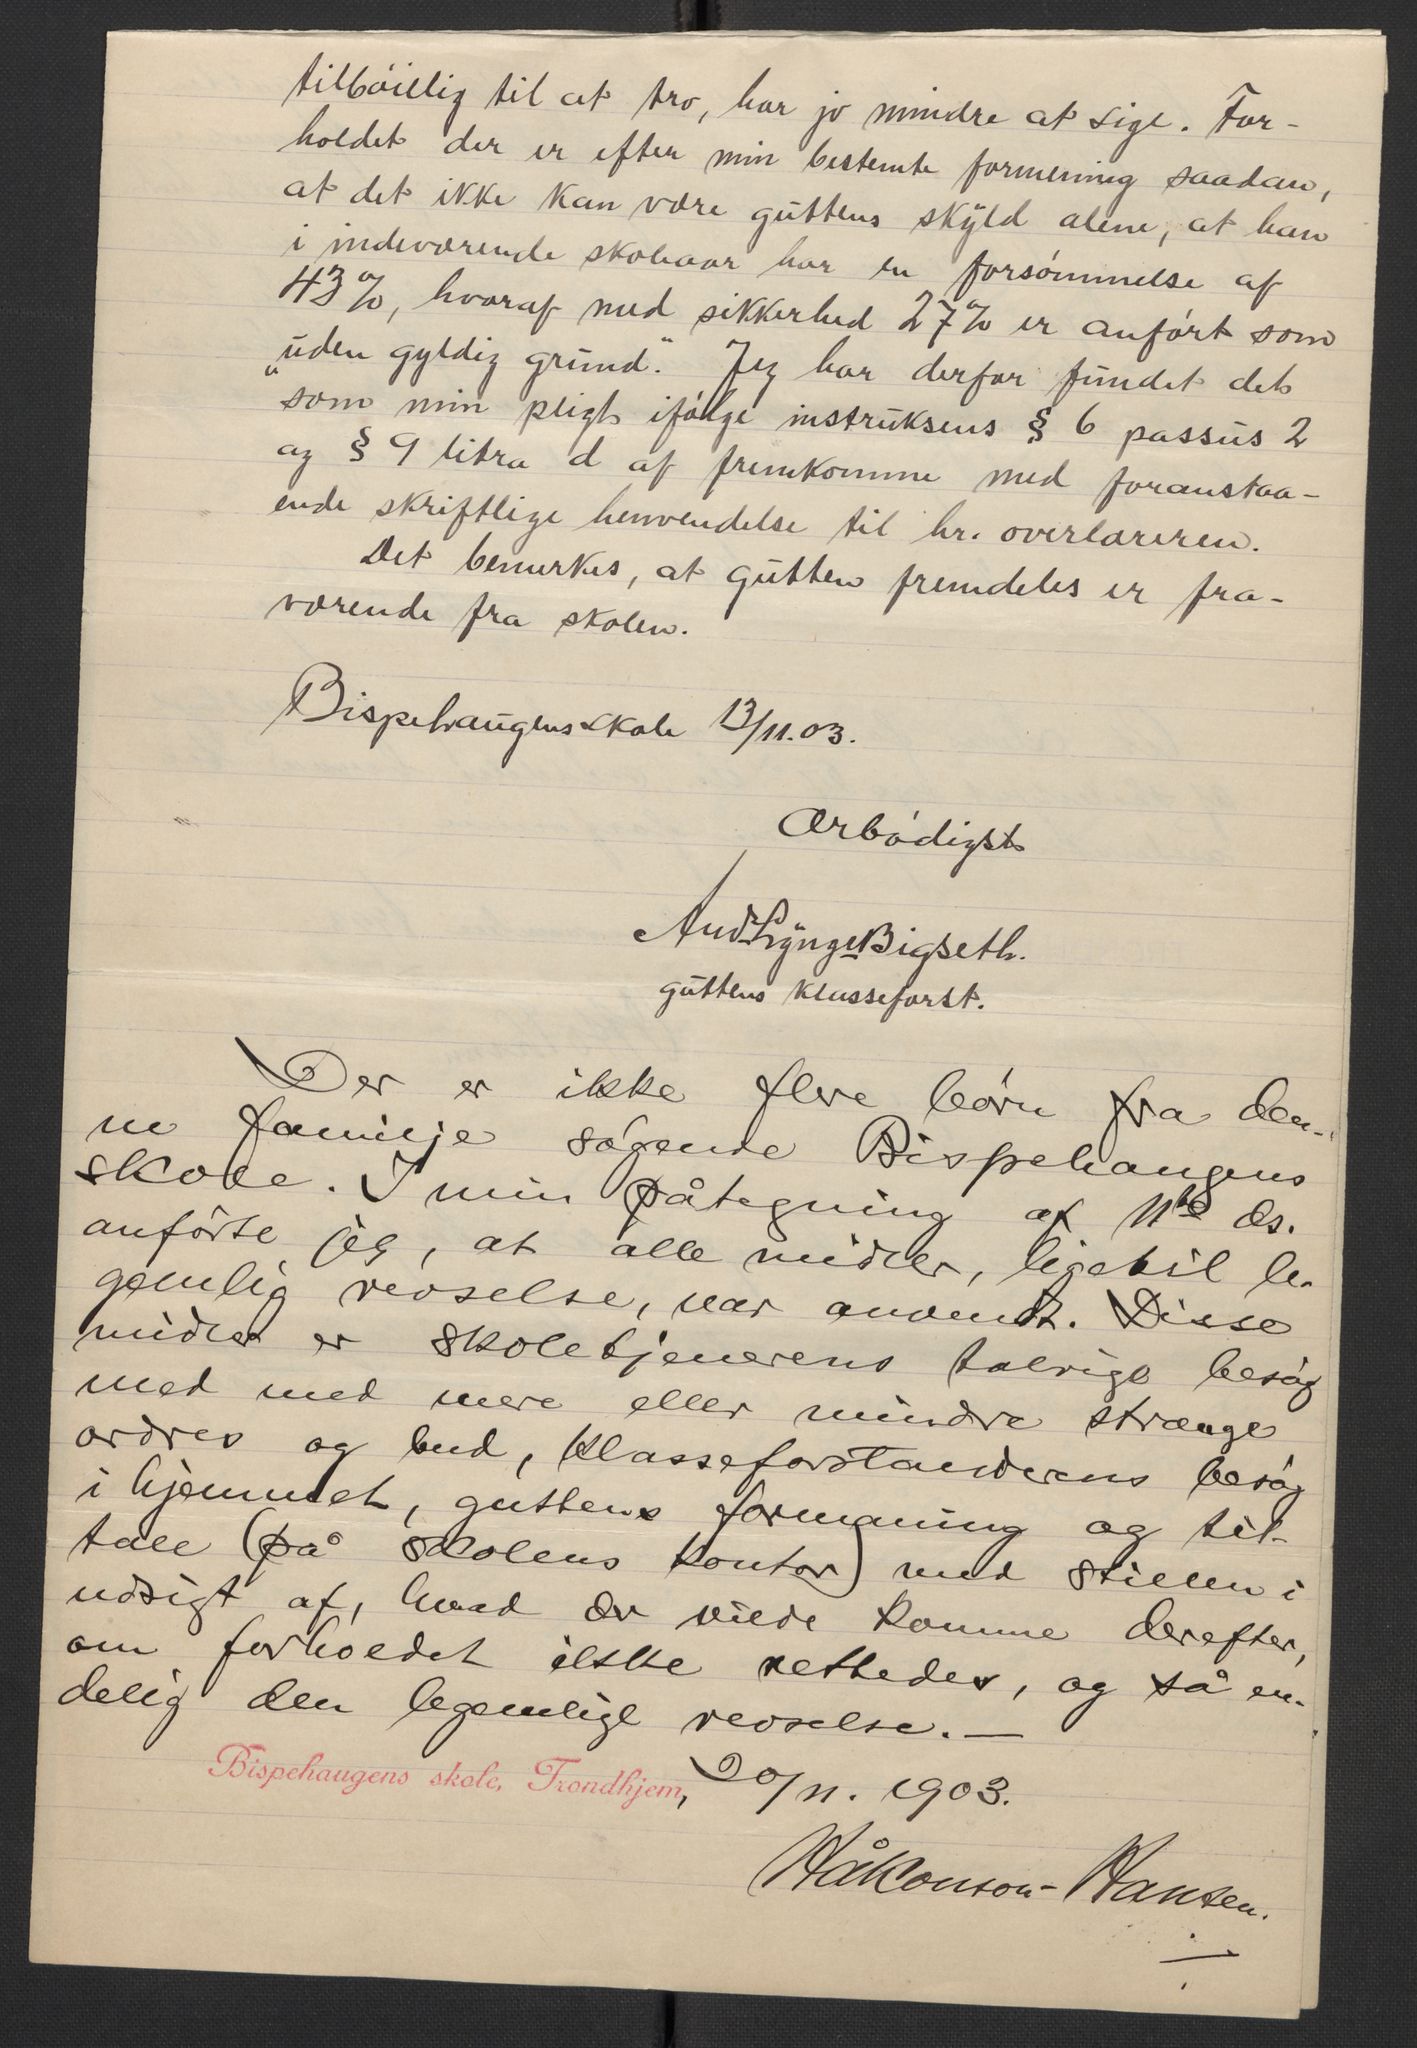 tilbøielig til at tro, har jo mindre at sige. For-
holdet der er efter min bestemte formening saadan,
at det ikke kan være guttens skyld alene, at han
i indeværende skoleaar har en forsømmelse af
43%, hvoraf med sikkerhed 27% er anført som
„uden gyldig grund“. Jeg har derfor fundet det
som min pligt ifølge instruksens § 6 passus 2
og § 9 litra d af fremkomme med foranstaa-
ende skriftlige henvendelse til hr. overlæreren.
Det bemerkes, at gutten fremdeles er fra-
værende fra skolen.
Bispehaugens skole 13/11.03.
Ærbødigst
And Lynge Bigseth.
guttens klasseforst.
Der er ikke flere børn fra den-
ne familje søgende Bispehaugens
skole. I min påtegning af 11te ds.
anførte jeg, at alle midler, ligetil le-
gemlig revselse, var anvendt. Disse
midler er skoletjenerens talrige besøg
med med mere eller mindre strænge
ordres og bud, klasseforstanderens besøg
i hjemmet, guttens formaning og til-
tale (på skolens kontor) med stillen i
udsigt af, hvad der vilde komme derefter,
om forholdet ikke rettedes, og så en-
delig den legemlige revselse. —
Bispehaugens skole, Trondhjem, 20/11. 1903.
Håkonson-Hansen.